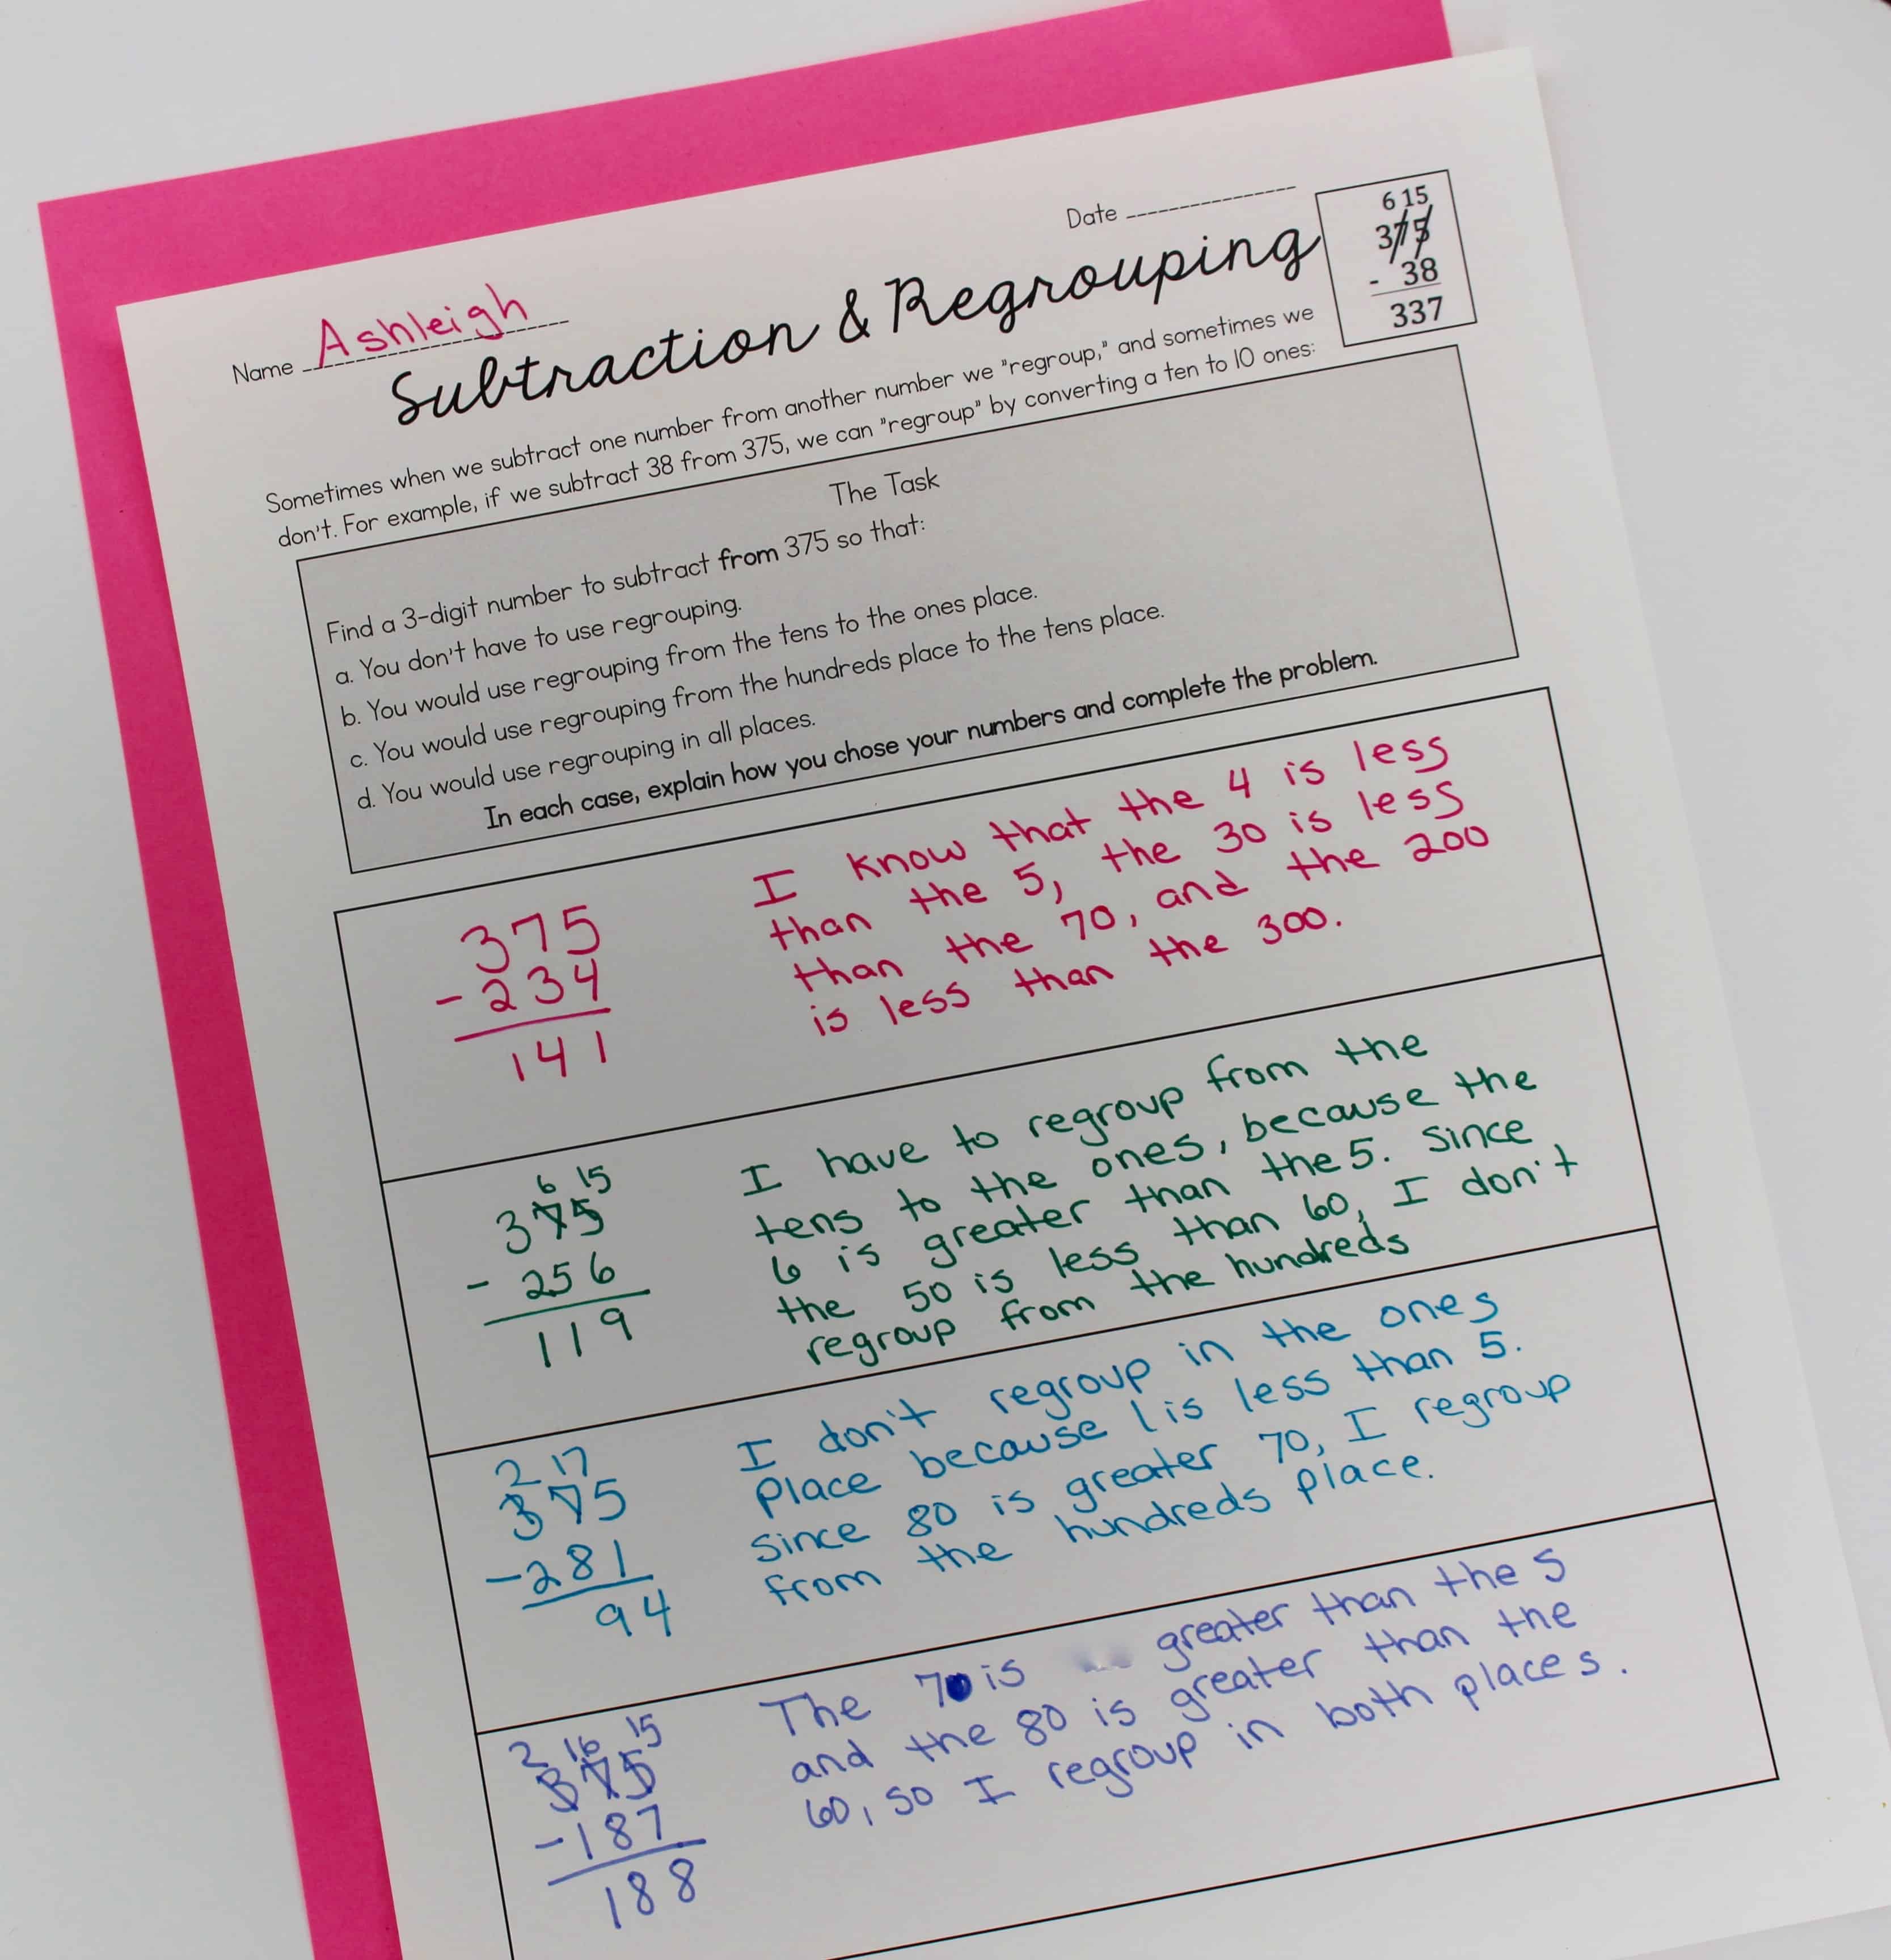 Name Ashleigh
Date
Subtraction & Regrouping
6 15
375
- 38
337
Sometimes when we subtract one number from another number we "regroup," and sometimes we
don't. For example, if we subtract 38 from 375, we can "regroup" by converting a ten to 10 ones:
The Task
Find a 3-digit number to subtract from 375 so that:
a. You don't have to use regrouping.
b. You would use regrouping from the tens to the ones place.
c. You would use regrouping from the hundreds place to the tens place.
d. You would use regrouping in all places.
In each case, explain how you chose your numbers and complete the problem.
375
- 234
141
I know that the 4 is less
than the 5, the 30 is less
than the 70, and the 200
is less than the 300.
6 15
375
- 256
119
I have to regroup from the
tens to the ones, because the
6 is greater than the 5. Since
the 50 is less than 60, I don't
regroup from the hundreds
2 17
375
- 281
94
I don't regroup in the ones
place because 1 is less than 5.
Since 80 is greater 70, I regroup
from the hundreds place.
2 16 15
375
- 187
188
The 7 is greater than the 5
and the 80 is greater than the
60, so I regroup in both places.